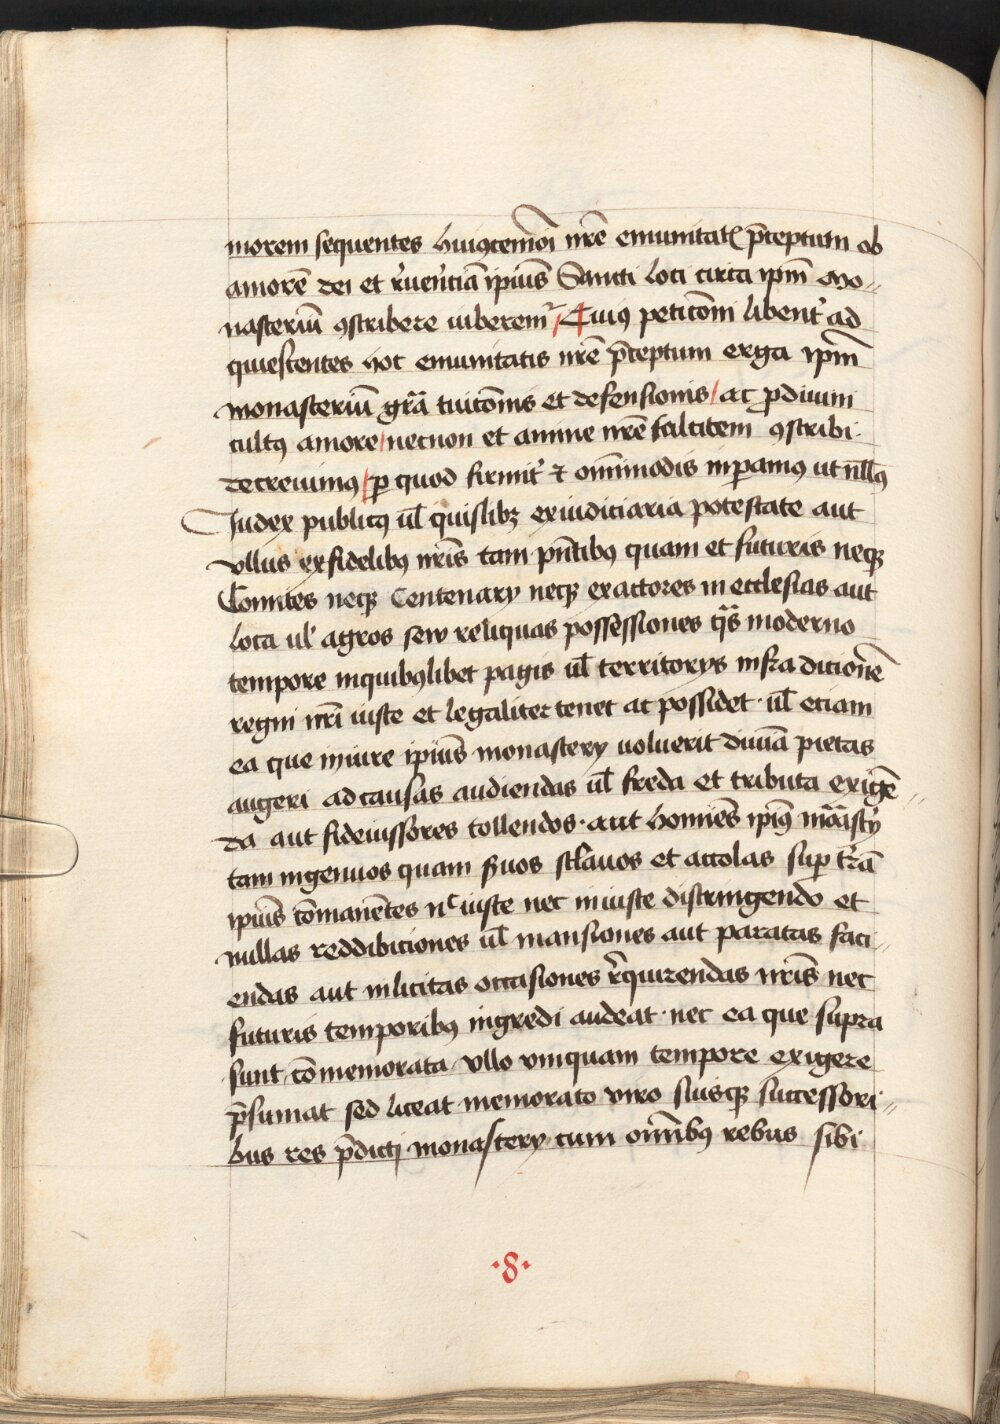 morem sequentes huiꝯcemōi nr̄e emunitatꝭ p̄ceptum ob
amorē dei et r̄uerēciā ipiūs Sancti loci circa ipm̄ mo〃
nasteriū ꝯscribere iuberemꝰ / Cuiꝯ peticōm libent᷑ ad
quiescentes hoc emunitatis nr̄e p̄ceptum erga ipm̄
monasteriū gr̄a tuicōnis et defensionis / ac ꝓ diuini
cultꝯ amore / necnon et anime nr̄e salutem ꝯscribi
decreuimꝯ / ꝑ quod firmit᷑ ⁊ om̄imodis inꝑamꝯ ut nll̄ꝯ
Judex publicꝯ ul̄ quislibꝫ ex iudiciaria potestate aut
vllus ex fidelibꝯ nr̄is tam pn̄tibꝯ quam et futuris neqꝫ
Comites neqꝫ Centenarÿ neqꝫ exactores in ecclesias aut
loca ul̄ agros sew reliquas possessiones qͣs moderno
tempore inquibꝯlibet pagis ul̄ territorÿs infra dicionē
regni nr̄i iuste et legaliter tenet ac possidet · ul̄ etiam
ea que iniure ipiūs monasterÿ uoluerit diuīa pietas
augeri ad causas audiendas ul̄ freda et tributa exigē〃
da aut fideiussores tollendos · aut homīes ipiꝯ mōast᷑ÿ
tam ingenuos quam ẜuos sclauos et accolas suꝑ t᷑rā
ipiūs cōmanētes nͨ iuste nec iniuste distringendo et
nullas reddibiciones ul̄ mansiones aut paratas faci〃
endas aut inlicitas occasiones r̄quirendas nr̄is nec
futuris temporibꝯ ingredi audeat · nec ea que supra
sunt cōmemorata vllo vmquam tempore exigere
p̄sumat sed liceat memorato viro suisqꝫ successori〃
bus res p̄dictj monasterÿ cum om̄ibꝯ rebus sibi
·8·